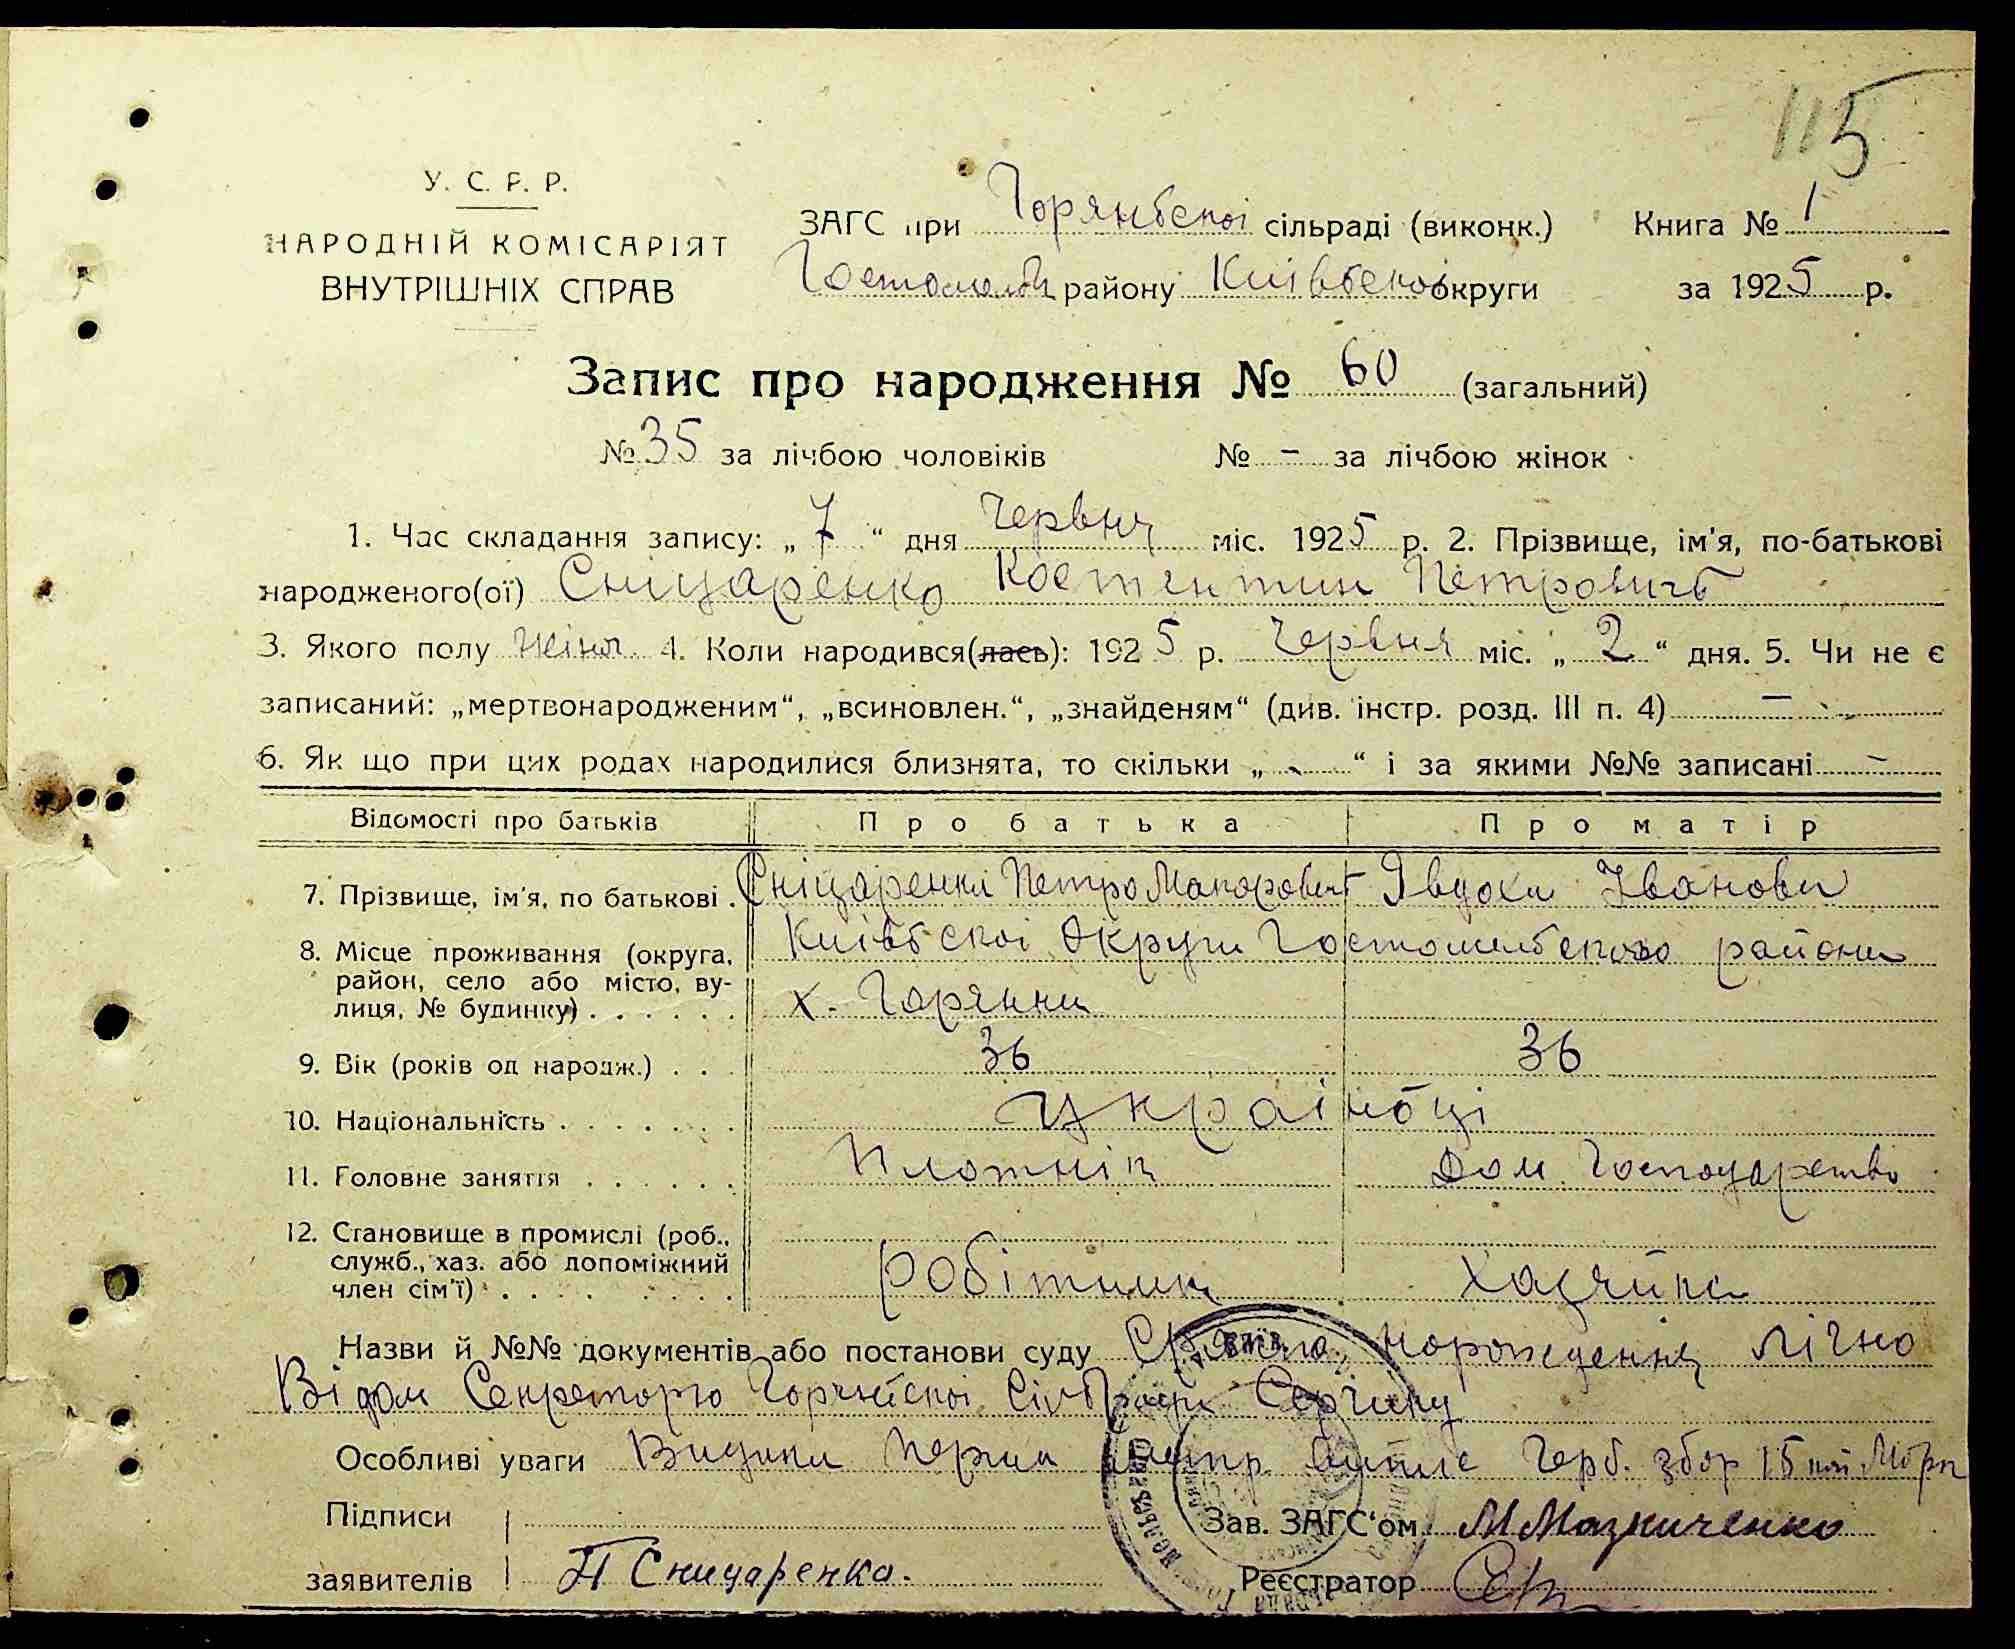 115
У. С. Р. Р.
НАРОДНІЙ КОМІСАРІЯТ
ВНУТРІШНІХ СПРАВ
ЗАГС при Горянської сільраді (виконк.) Книга № 1
району Київської округи за 1925 р.
Запис про народження № 60 (загальний)
№ 35 за лічбою чоловіків № – за лічбою жінок
1. Час складання запису: „ 7 “ дня Червня міс. 1925 р. 2. Прізвище, ім'я, по-батькові
народженого(ої) Сніцаренко Костентин Петровичъ
3. Якого полу 4. Коли народився(лась): 1925 р. Червня міс. „ 2 “ дня. 5. Чи не є
записаний: „мертвонародженим“, „всиновлен.“, „знайденям“ (див. інстр. розд. III п. 4) –
6. Як що при цих родах народилися близнята, то скільки „ - “ і за якими №№ записані –
Відомості про батьків Про батька Про матір
7. Прізвище, ім'я, по батькові . Сніцаренко Петро Макарович Явдоха Іванова
8. Місце проживання (округа, Київської Округи Гостомельського района
район, село або місто, ву- х. Горянки
лиця, № будинку) . . . . . .
9. Вік (років од народж.) . . . 36 36
10. Національність . . . . . . . Українці
11. Головне заняття . . . . . . Плотнік Дом. Господарство
12. Становище в промислі (роб.,
служб., хаз. або допоміжний робітник хазяйка
член сім'ї) . . . . . . . .
Назви й №№ документів або постанови суду нарождення лічно
Відом Секреторю Сільради
Особливі уваги Видана Герб. збор 15 коп
Підписи Зав. ЗАГС'ом М Мазниченко
заявителів П Сницаренко. Реєстратор